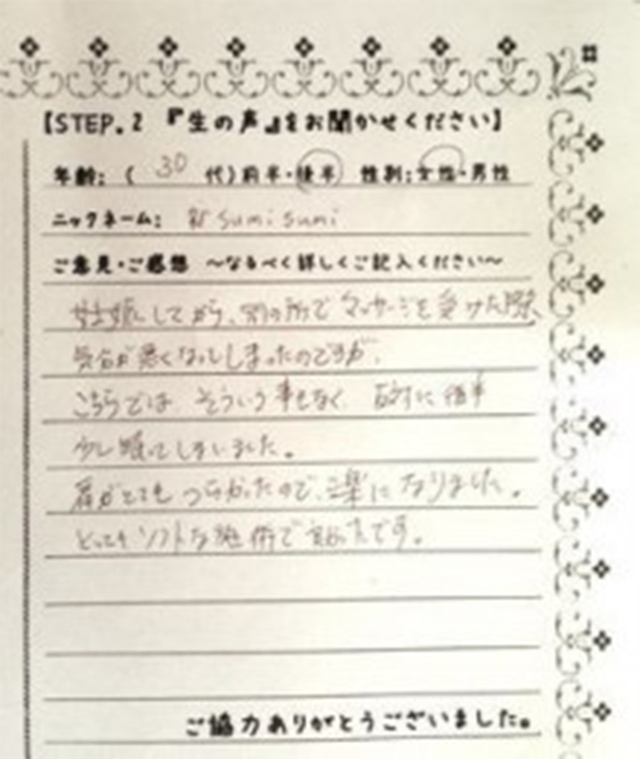 【STEP.2 『生の声』をお聞かせください】
年齢:( 30 代)前半・後半 性別:女性・男性
ニックネーム: sumi sumi
ご意見・ご感想 ～なるべく詳しくご記入ください～
妊娠してから、別の所でマッサージを受けた際、
気分が悪くなってしまったのですが、
こちらでは そういう事もなく
少し眠ってしまいました。
肩がとても つらかったので、楽になりました。
とってもソフトな施術で です。
ご協力ありがとうございました。